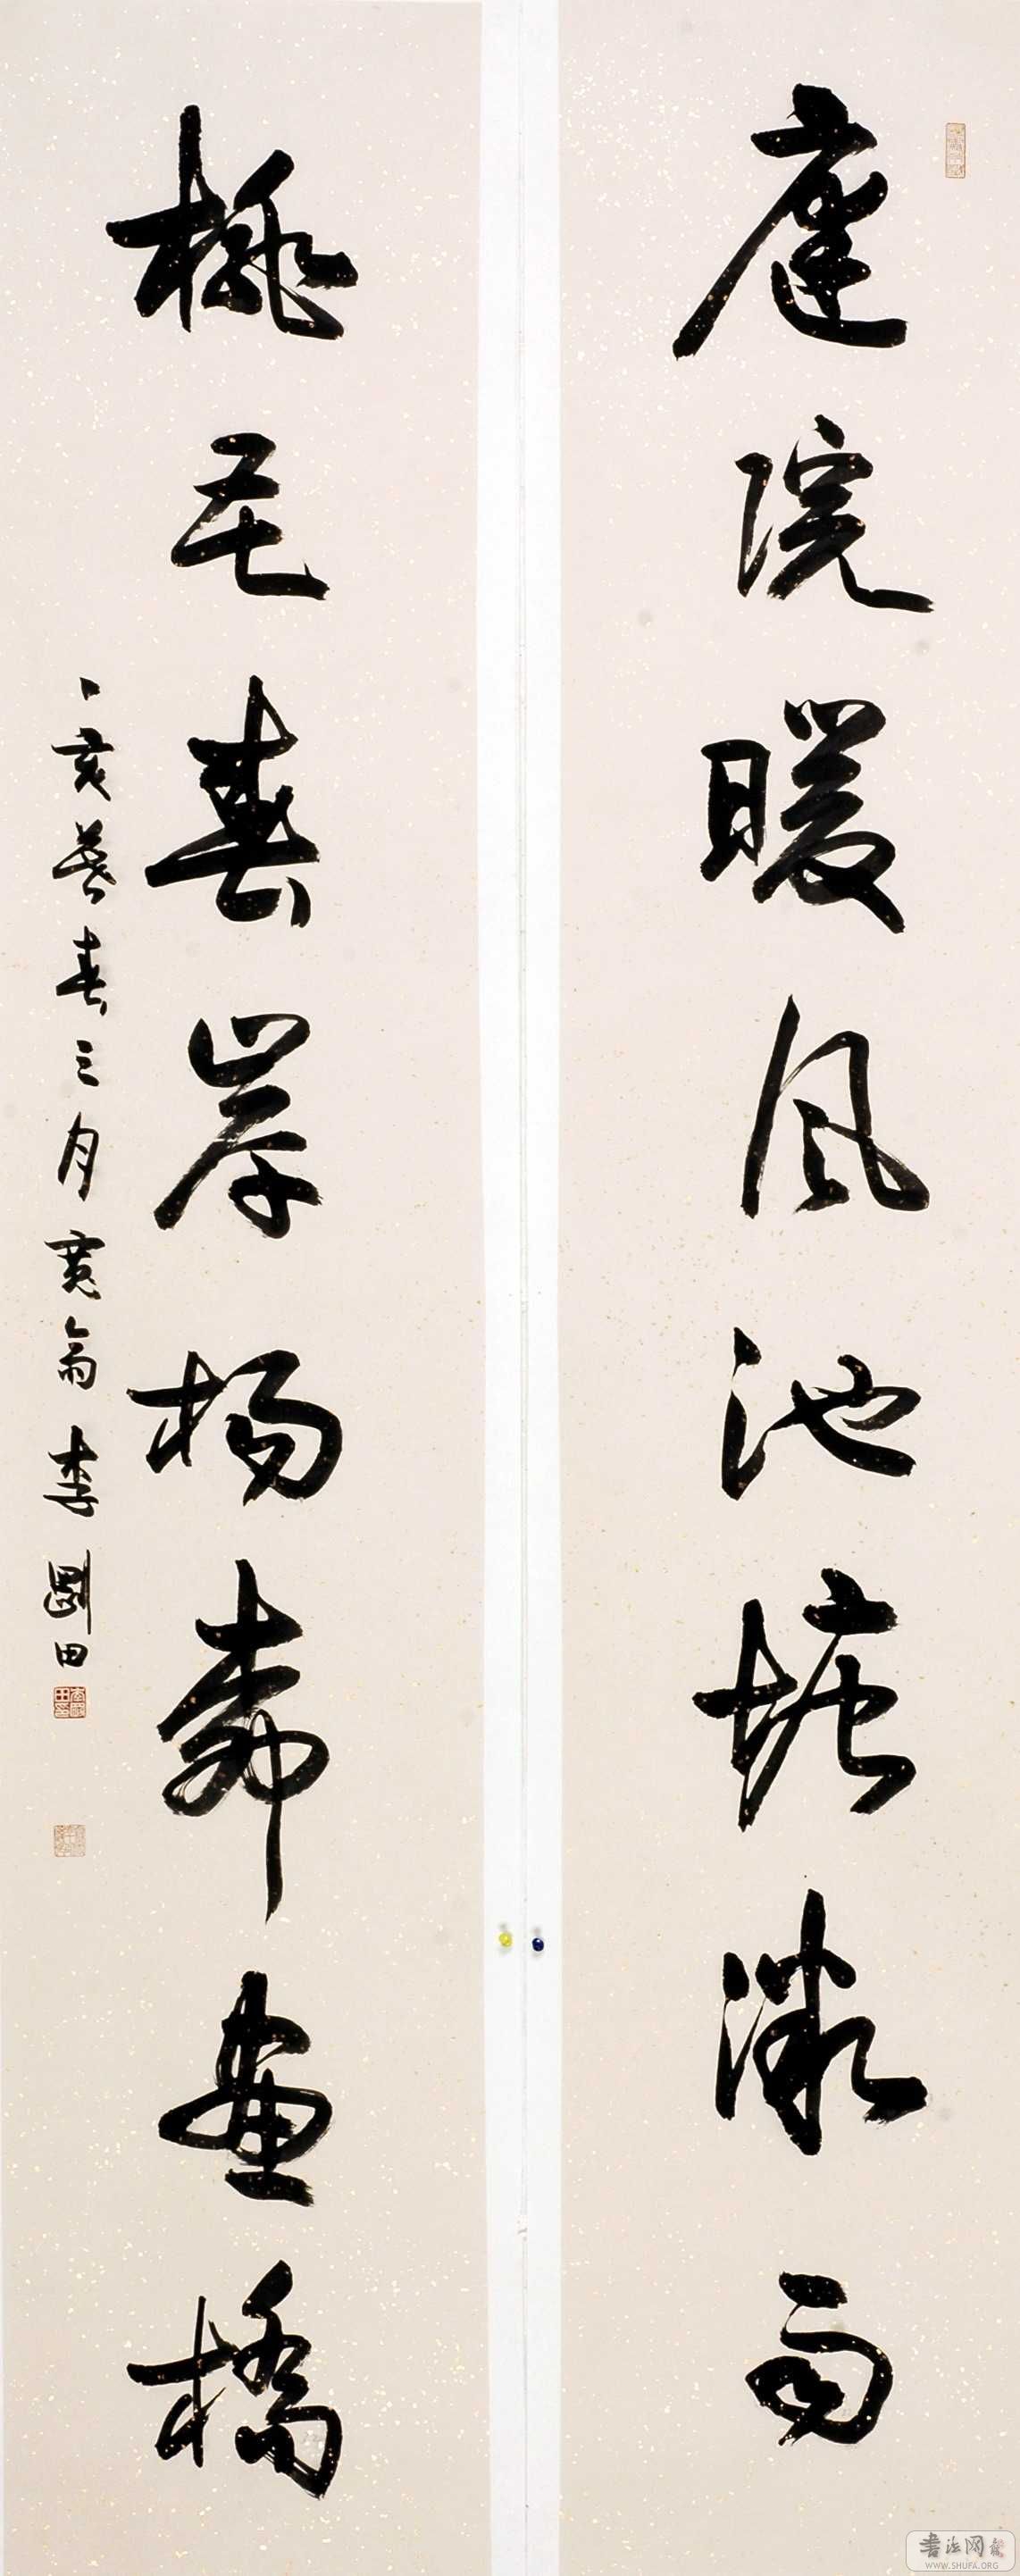 庭院暖風池塘微雨
桃花春岸楊柳畫橋
丁亥暮春三月寬齋李剛田
書法网
WWW.SHUFA.ORG